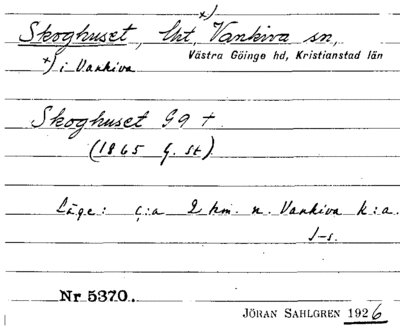 Skoghuset, lht, x) Vankiva sn,
Västra Göinge hd, Kristianstad län
x) i Vankiva
Skoghuset G9 +
(1865 G. St)
Läge: c:a 2 km. n. Vankiva k:a.
J-s.
Nr 5370.
JÖRAN SAHLGREN 1926